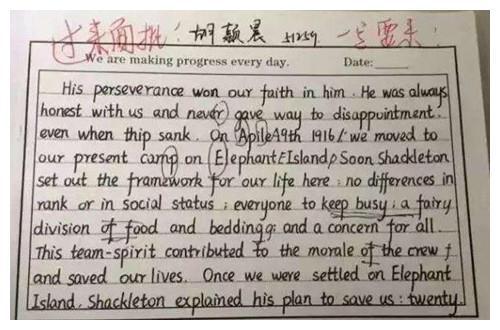 过来面批! 胡颖晨 51259 一定要来!
We are making progress every day. Date:
His perseverance won our faith in him. He was always
honest with us and never gave way to disappointment.
even when thip sank. On Apile19th 1916, we moved to
our present camp on Elephant Island, Soon Shackleton
set out the framework for our life here: no differences in
rank or in social status; everyone to keep busy; a fairy
division of food and bedding; and a concern for all.
This team-spirit contributed to the morale of the crew
and saved our lives. Once we were settled on Elephant
Island, Shackleton explained his plan to save us: twenty.